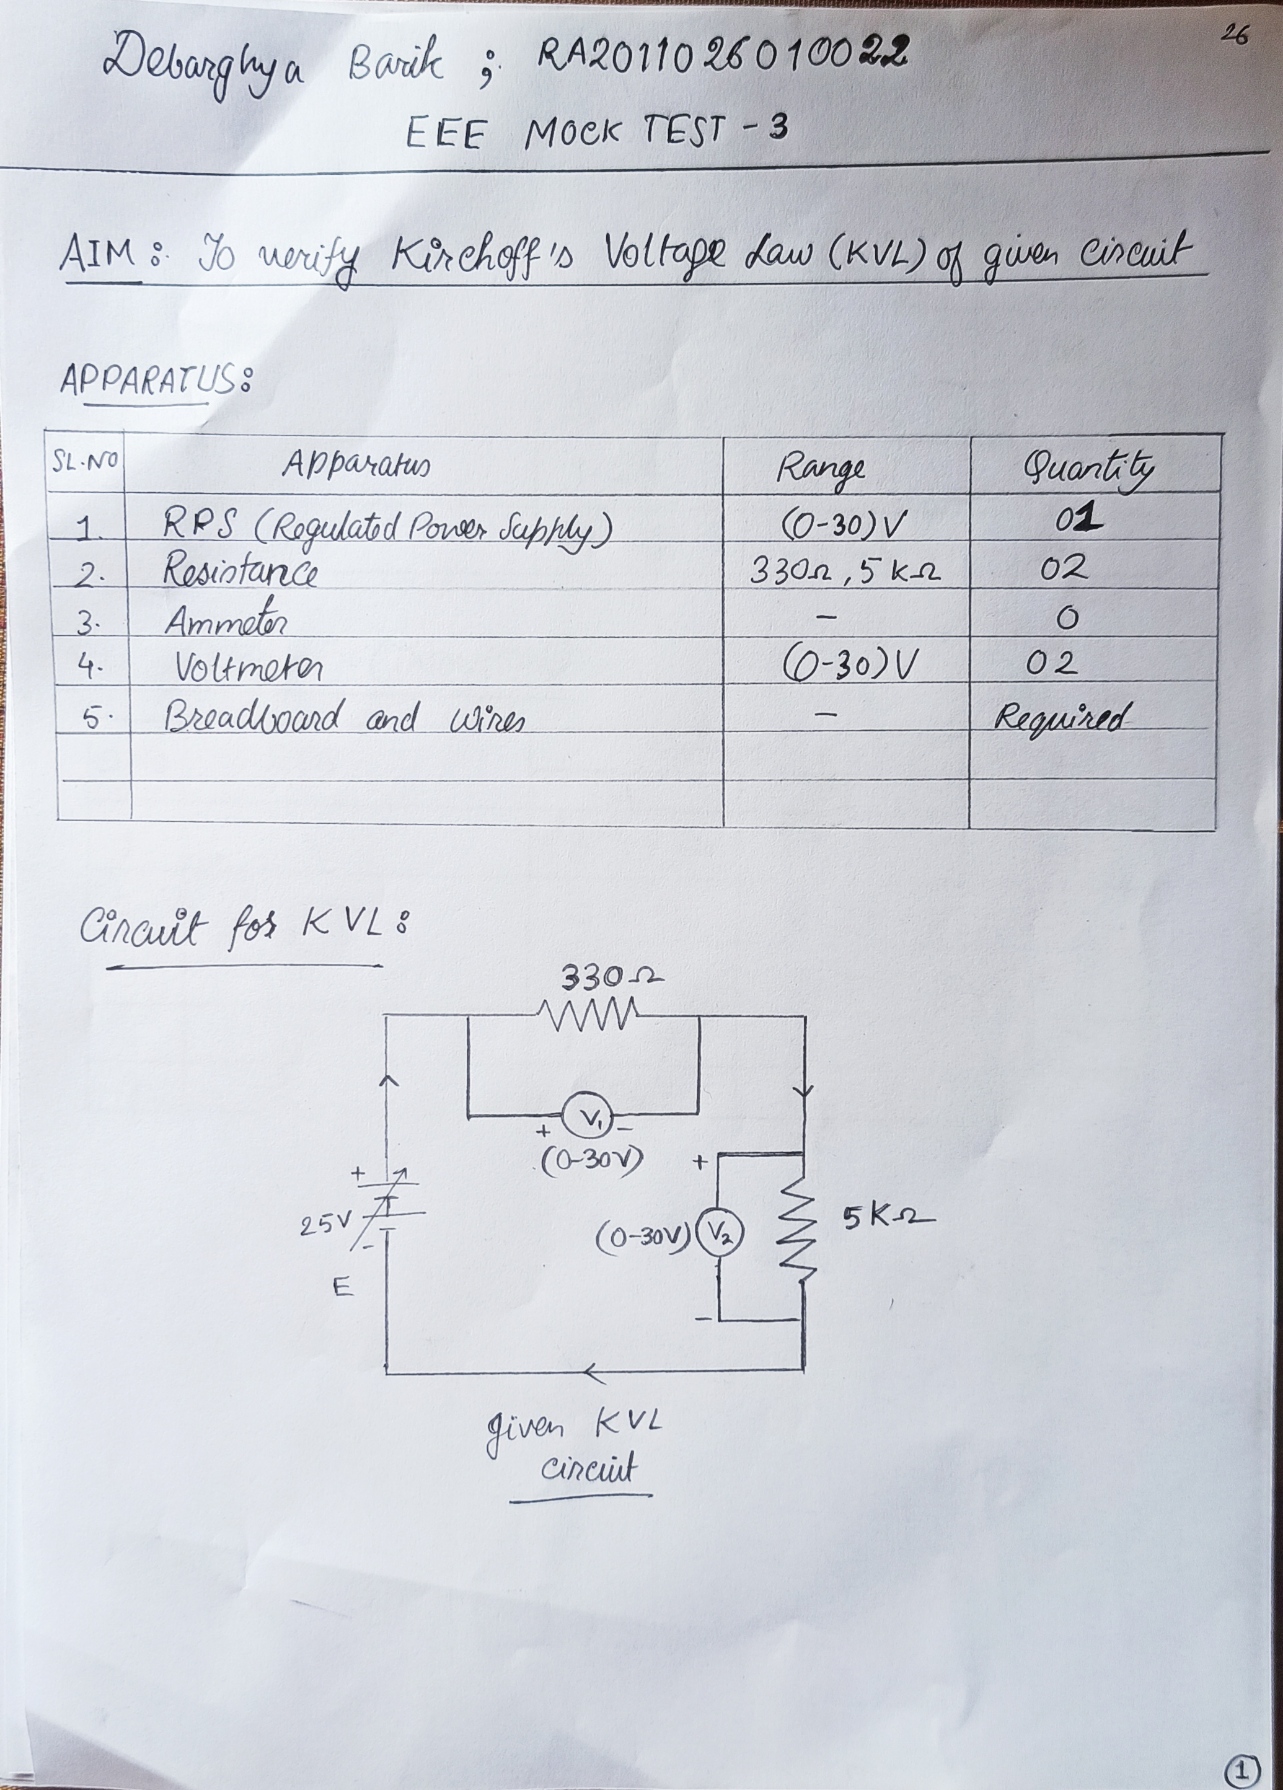 26
Debarghya Barik ; RA2011026010022
EEE MOCK TEST - 3
AIM : To verify Kirchoff's Voltage Law (KVL) of given circuit
APPARATUS :
SL.NO Apparatus Range Quantity
1. RPS (Regulated Power Supply) (0-30)V 01
2. Resistance 330Ω, 5 KΩ 02
3. Ammeter - 0
4. Voltmeter (0-30)V 02
5. Breadboard and wires - Required
Circuit for KVL :
330Ω
V₁
+ -
(0-30V)
+
+
25V
(0-30V) V₂
5KΩ
-
E
-
given KVL
circuit
1